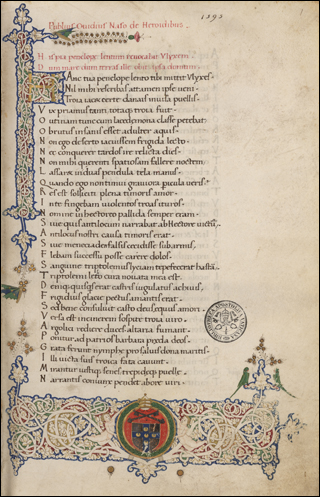 Publius Ouidius Naso de Heroidibus
penelope lentum reuocabat Vlyxem
HAnc tua penelope lento tibi mittit Vlyxes
Nil mihi rescribas attamen ipse ueni
Troia iacet certe danais inuisa puellis
Vix priamus tanti totaque troia fuit
O utinam tunc cum lacedemona classe petebat
Obrutus insanis esset adulter aquis
Non ego deserto iacuissem frigida lecto
Nec conquerer tardos ire relicta dies
Non mihi querenti spatiosam fallere noctem
Lassaret uiduas pendula tela manus
Quando ego non timui grauiora pericula ueris
Res est solliciti plena timoris amor
In te fingebam uiolentos troas ituros
Nomine in hectoreo pallida semper eram
Siue quis antilocum narrabat ab Hectore uictum
Antilocus nostri causa timoris erat
Siue falsis cecidisse sub armis
Flebam successu posse carere dolos
Sanguine triptolemus lyciam tepefecerat hastam
Triptolemi leto cura nouata mea est
Denique quisquis erat castris iugulatus achiuis
Frigidius glacie pectus amantis erat
Sed bene consuluit casto deus equus amori
Versa est in cineres sospite troia uiro
Argolici rediere duces altaria fumant
Ponitur ad patrios barbara preda deos
Grata ferunt nymphe pro saluis dona maritis
Illi uicta suis troica fata canunt
Mirantur iustique senes trepideque puelle
Narrantis coniunx pendet ab ore uiri